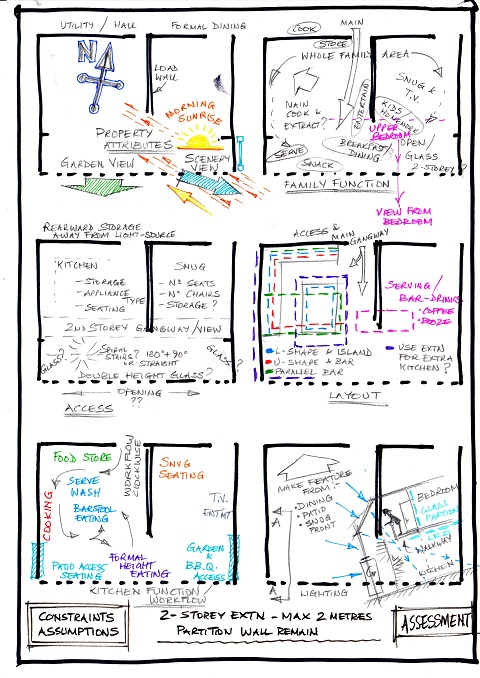 UTILITY / HALL
FORMAL DINING
N
LOAD
WALL
MORNING
SUNRISE
PROPERTY
ATTRIBUTES
GARDEN VIEW
SCENERY
VIEW
COOK
MAIN
STORE
WHOLE FAMILY AREA
SNUG &
T.V.
MAIN
COOK &
EXTRACT?
ENTERTAIN
KIDS
HOMEWORK
UPPER
BEDROOM
SERVE
BREAKFAST/
DINING
OPEN
GLASS
2-STOREY?
SNACK
FAMILY FUNCTION
VIEW FROM
BEDROOM
REARWARD STORAGE
AWAY FROM LIGHT-SOURCE
KITCHEN
- STORAGE
- APPLIANCE
TYPE
SEATING
SNUG
- Nº SEATS
- Nº CHAIRS
- STORAGE?
2ND STOREY GANGWAY/VIEW
GLASS?
SPIRAL
STAIRS? 180°+90°
OR STRAIGHT
GLASS?
DOUBLE HEIGHT GLASS?
OPENING
??
ACCESS
ACCESS &
MAIN
GANGWAY
SERVING/
BAR-DRINKS
- COFFEE
- BOOZE
L-SHAPE & ISLAND
U-SHAPE & BAR
PARALLEL BAR
USE EXTN
FOR EXTRA
KITCHEN?
LAYOUT
FOOD STORE
WORKFLOW
CLOCKWISE
SNUG
SEATING
COOKING
SERVE
WASH
BARSTOOL
EATING
T.V.
ENTMT
FORMAL
HEIGHT
EATING
PATIO ACCESS
SEATING
GARDEN
& B.B.Q.
ACCESS
KITCHEN FUNCTION/
WORKFLOW
MAKE FEATURE
FROM:-
- DINING
- PATIO
- SNUG
FRONT
A
A
LIGHTING
BEDROOM
GLASS
PARTION
WALKWAY
KITCHEN
CONSTRAINTS
ASSUMPTIONS
2-STOREY EXTN - MAX 2 METRES
PARTITION WALL REMAIN
ASSESSMENT